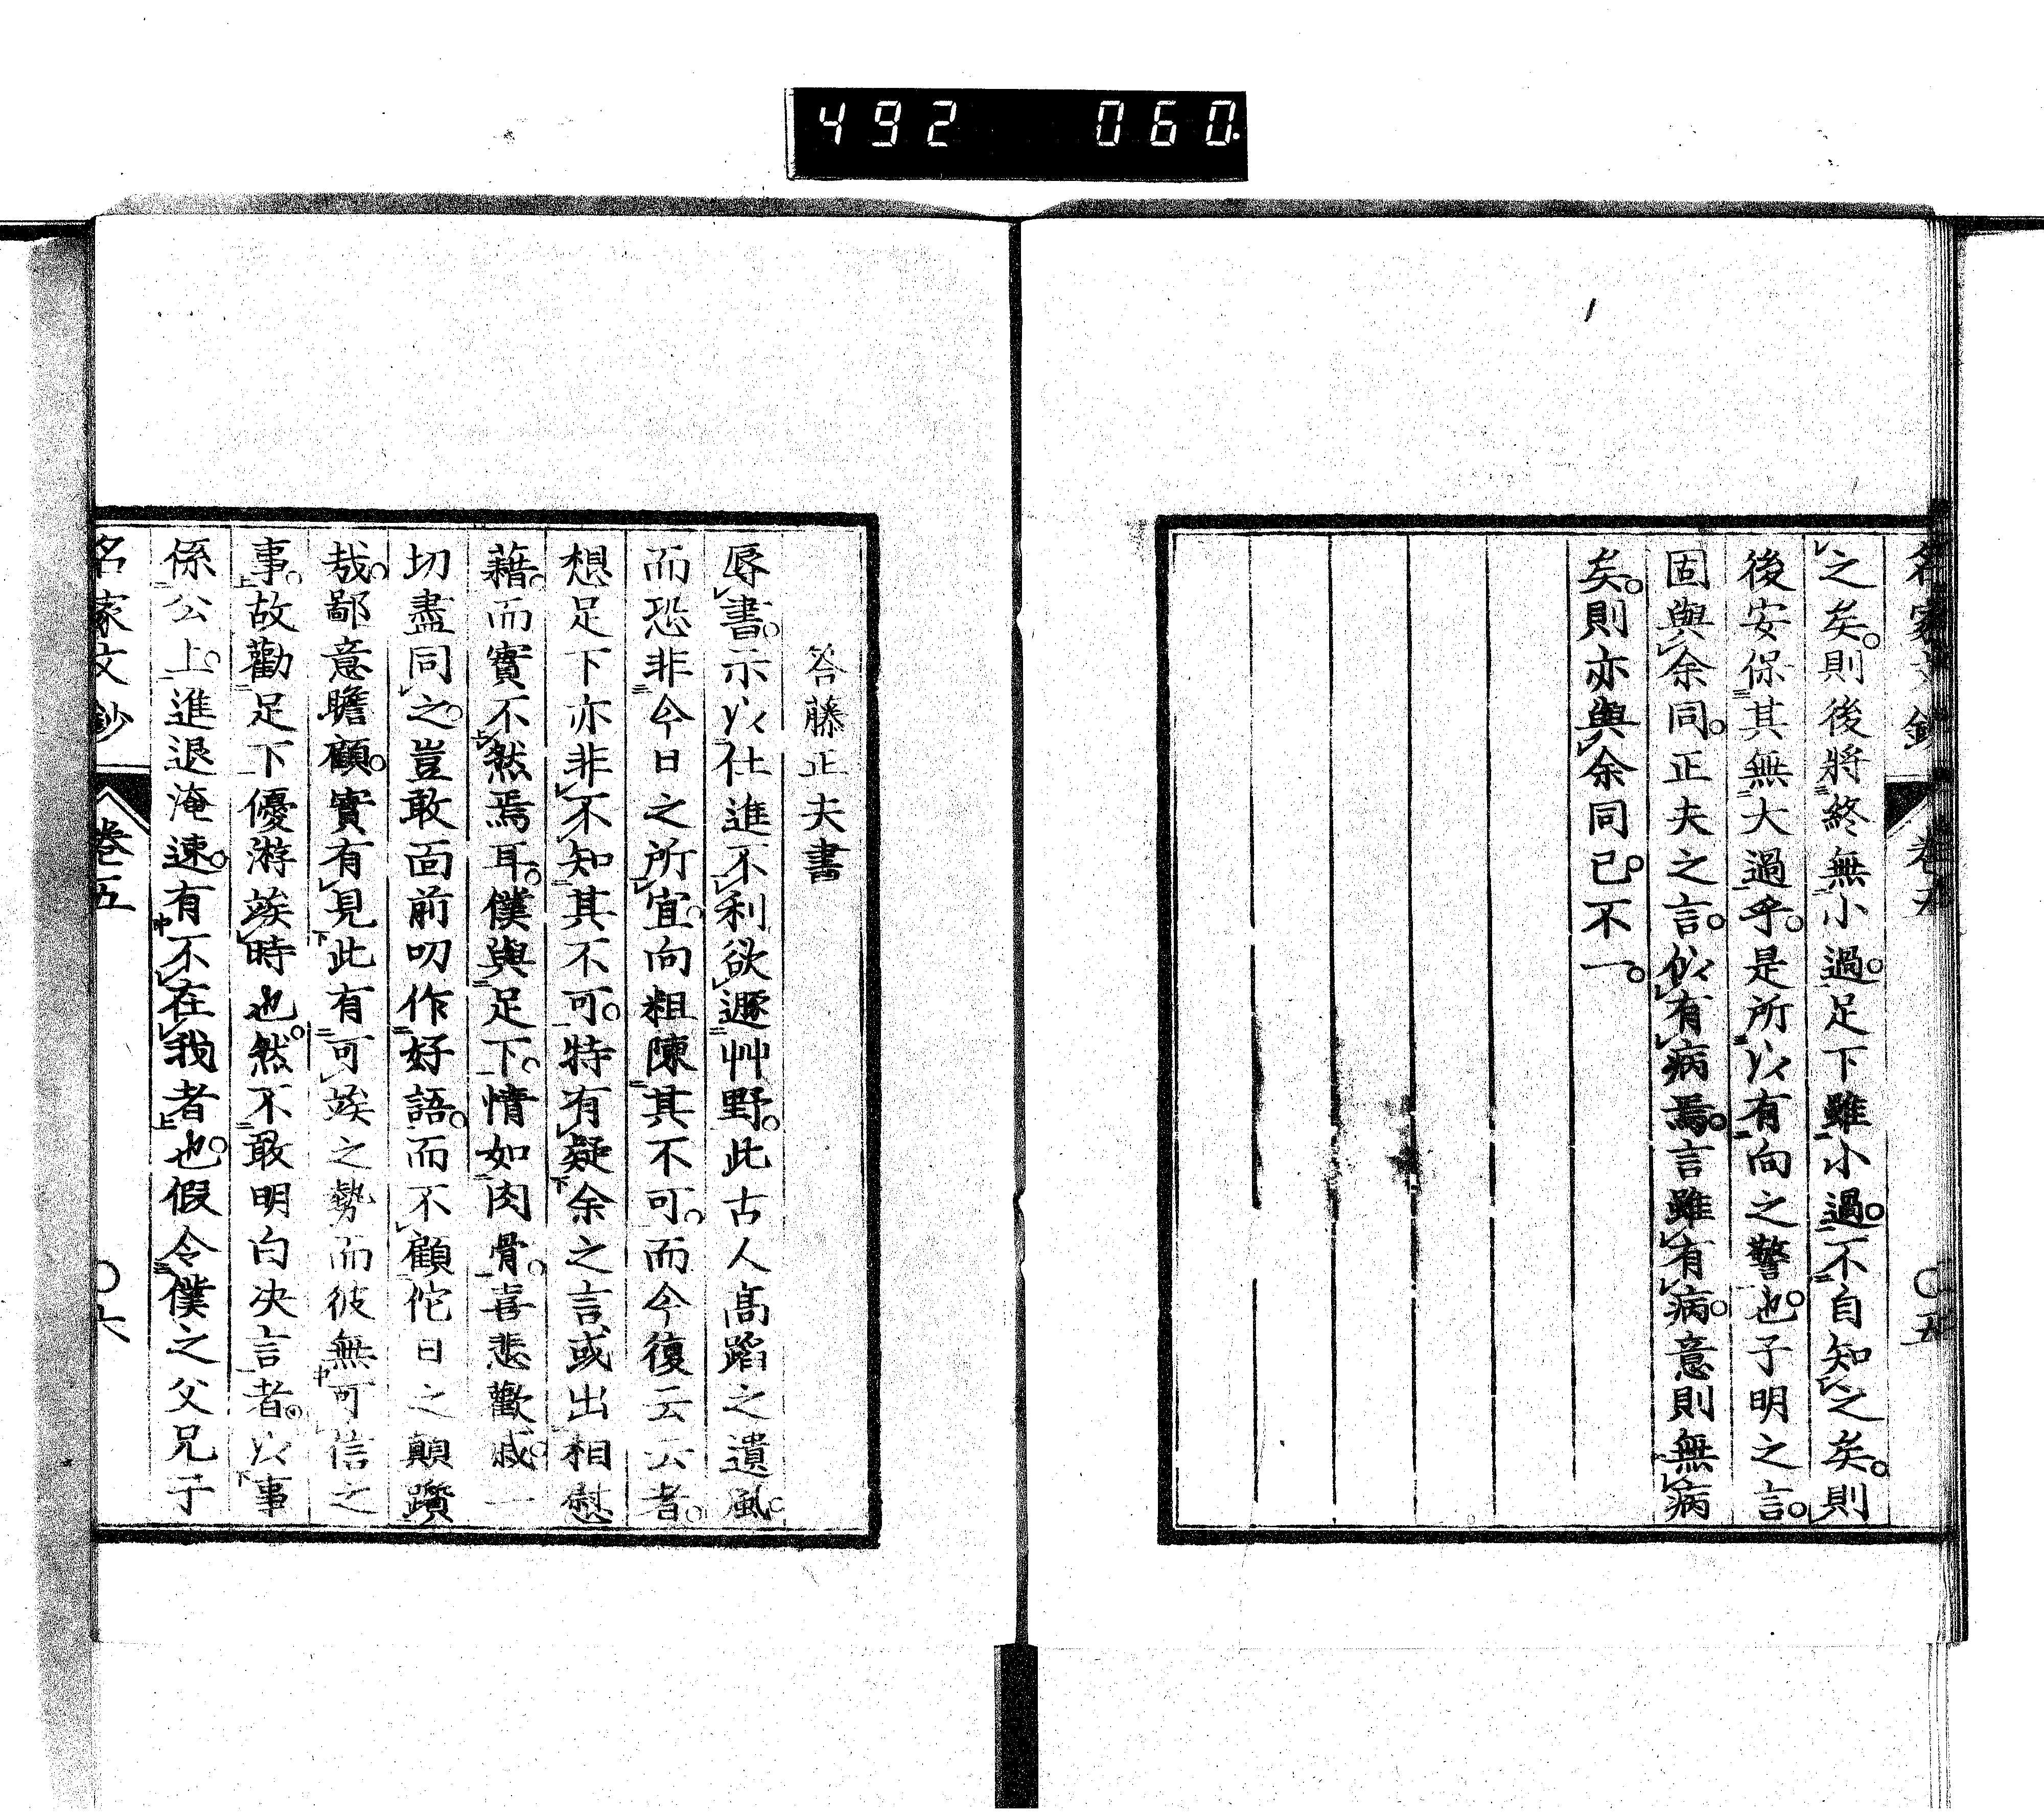 492 060.
名家文鈔 卷五 〇五
之矣。則後將終無小過。足下雖小過。不自知之矣。則
後安保其無大過乎。是所以有向之警也。子明之言。
固與余同。正夫之言。似有病焉。言雖有病。意則無病
矣。則亦與余同已。不一。
答藤正夫書
辱書。示以仕進不利欲遯艸野。此古人高蹈之遺風。
而恐非今日之所宜。向粗陳其不可。而今復云云者。
想足下亦非不知其不可。特有疑余之言、或出相慰
藉。而實不然焉耳。僕與足下。情如肉骨。喜悲歡戚。一
切盡同之。豈敢面前叨作好語。而不顧佗日之顛躓
哉。鄙意瞻顧。實有見此有可竢之勢而彼無可信之
事。故勸足下優游竢時也。然不敢明白决言者。以事
係公上。進退淹速。有不在我者也。假令僕之父兄子
名家文鈔 卷五 〇六